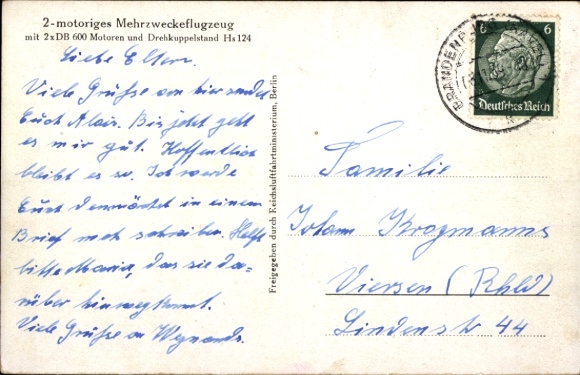 2-motoriges Mehrzweckeflugzeug
mit 2x DB 600 Motoren und Drehkuppelstand Hs 124
Liebe Eltern.
Viele Grüße von hier sendet
Euch Alois. Bis jetzt geht
es mir gut. Hoffentlich
bleibt es so. Ich werde
Euch demnächst in einem
Brief mehr schreiben. Helft
bitte Maria, das sie da-
rüber hinwegkommt.
Viele Grüße an
Freigegeben durch Reichsluftfahrtministerium, Berlin
6 6
Deutsches Reich
BRANDENBURG (HAVEL)
Familie
Johann Krogmanns
Viersen (Rhld)
Lindenstr 44